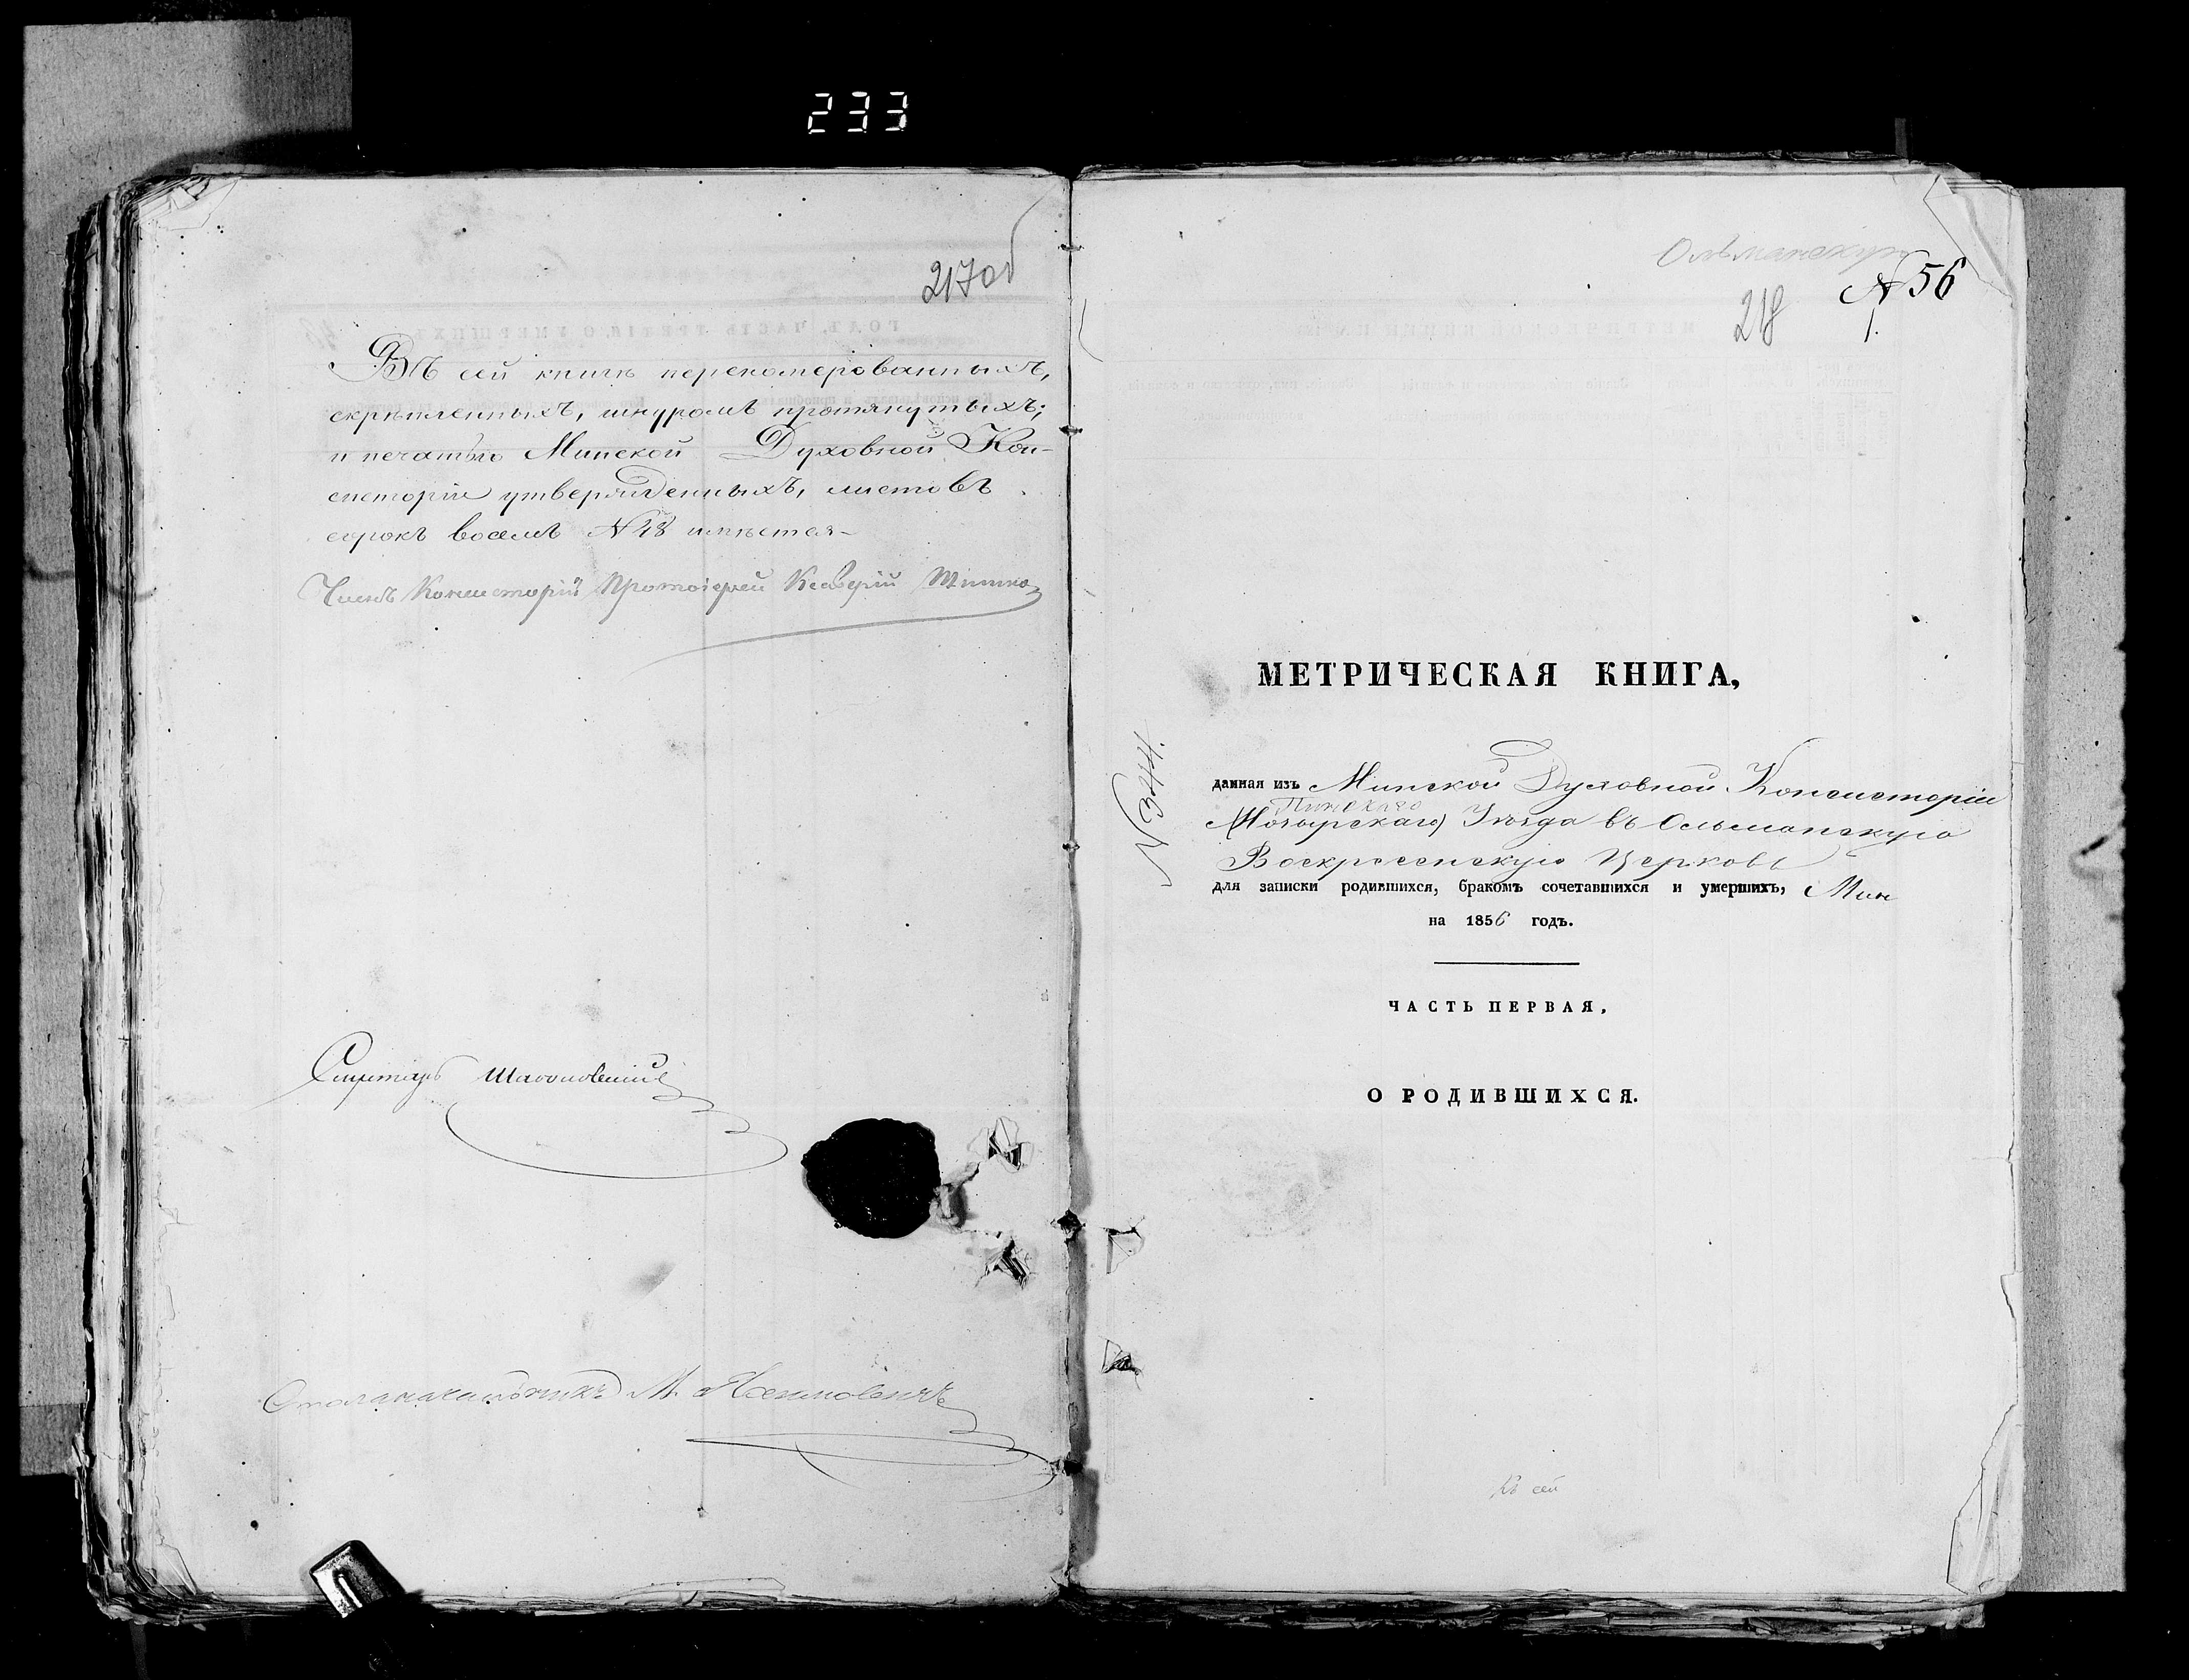 233
217об
Въ сей книгѣ перекомерованныхъ,
скрѣпленныхъ, шнуромъ протянутыхъ;
и печатью Минской Духовной Кон-
систоріи утвержденныхъ, листовъ
сорокъ восемь N 48 имѣется
Членъ Консисторій Протоіерей
Секретарь
Столоначальникъ М.
Ольманскую
N 56
218
1.
МЕТРИЧЕСКАЯ КНИГА,
N 344.
данная изъ Минской Духовной Консисторіи
Пинскаго
(Мозырскаго) Уѣзда въ Ольманскую
Воскресенскую Церковь
для записки родившихся, бракомъ сочетавшихся и умершихъ, Мин
на 1856 годъ.
ЧАСТЬ ПЕРВАЯ,
О РОДИВШИХСЯ.
Къ сей